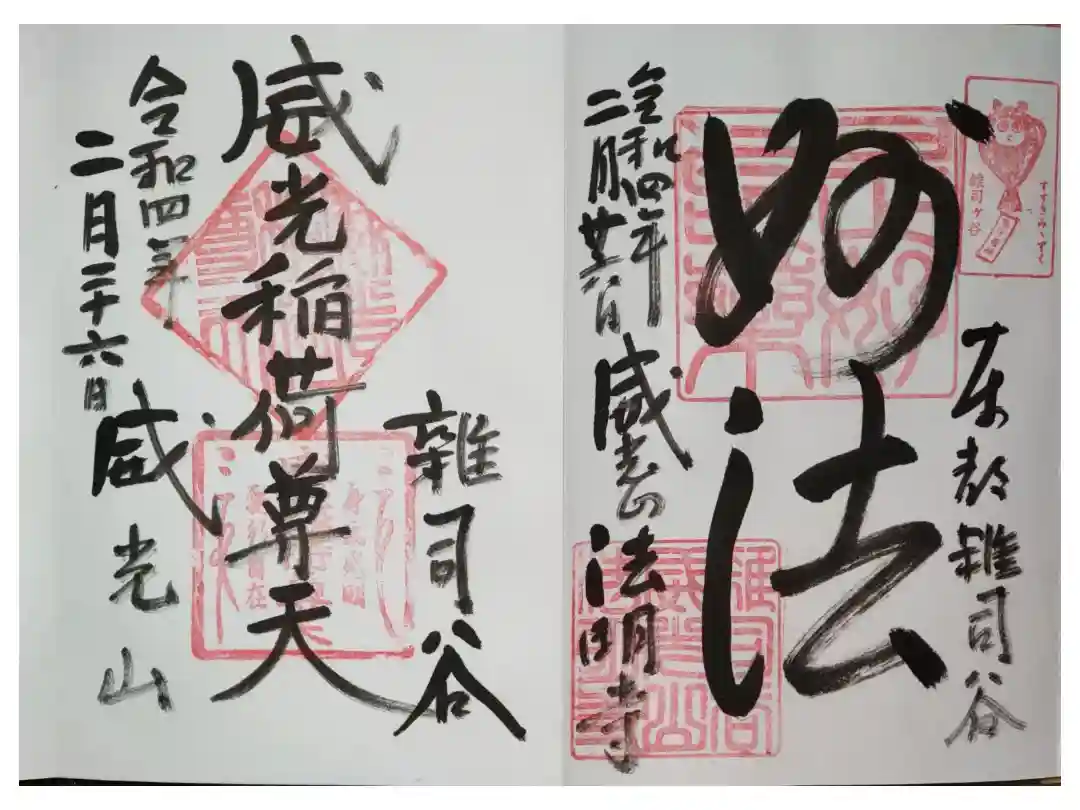 東都雑司谷
妙法
威光山
法明寺
令和四年
二月廿六日
雑司ケ谷
すすきみみずく
雑司谷
威光稲荷尊天
威光山
令和四年
二月二十六日